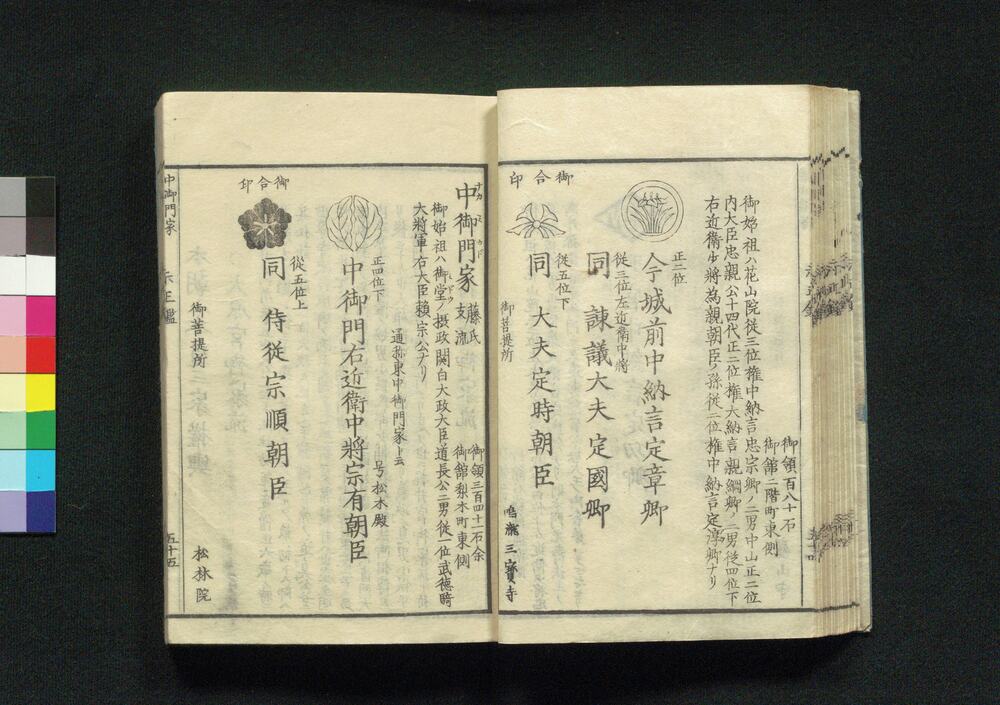 御領百八十石
御館二階町東側
御始祖ハ花山院従三位権中納言忠宗卿ノ二男中山正二位
内大臣忠親公十四代正二位権大納言親綱卿ノ二男従四位下
右近衛少将為親朝臣ノ孫従二位権中納言定淳卿ナリ
正二位
今城前中納言定章卿
従三位左近衛中将
同 諌議大夫定國卿
御合印
従五位下
同 大夫定時朝臣
御菩提所
鳴瀧三寳寺
中御門家
ナカミカド
藤氏
支流
御領三百四十一石余
御館梨木町東側
御始祖ハ御堂ノ摂政関白大政大臣道長公二男従一位武徳時
ミドウ
大将軍右大臣頼宗公ナリ
通称東中御門家ト云
号松木殿
正四位下
中御門右近衛中將宗有朝臣
御合印
従五位上
同 侍従宗順朝臣
御菩提所
松林院
中御門家
五十五